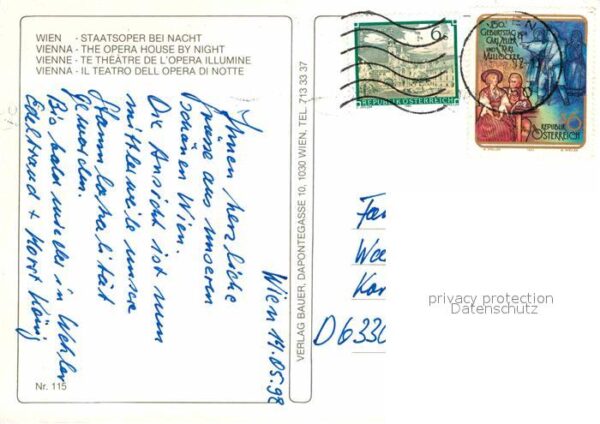 WIEN - STAATSOPER BEI NACHT
VIENNA - THE OPERA HOUSE BY NIGHT
VIENNE - TE THÉATRE DE L'OPERA ILLUMINE
VIENNA - IL TEATRO DELL OPERA DI NOTTE
Wien 14.05.98
Ihnen herzliche
Grüsse aus unserem
schönen Wien.
Die Ansicht ist nun
mittlerweile unser
Stammlokalität
geworden.
Bis bald wieder in Wetzlar
Edeltraud + Horst König
Nr. 115
VERLAG BAUER, DAPONTEGASSE 10, 1030 WIEN, TEL. 713 33 37
6
REPUBLIK ÖSTERREICH
150.
GEBURTSTAG VON
CARL ZELLER
UND KARL
MILLÖCKER
REPUBLIK
ÖSTERREICH
D 6330
privacy protection
Datenschutz